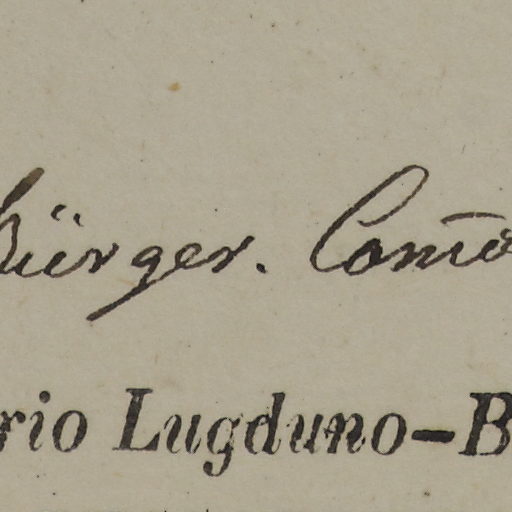 Bürger. Com̄o
rio Lugduno-B